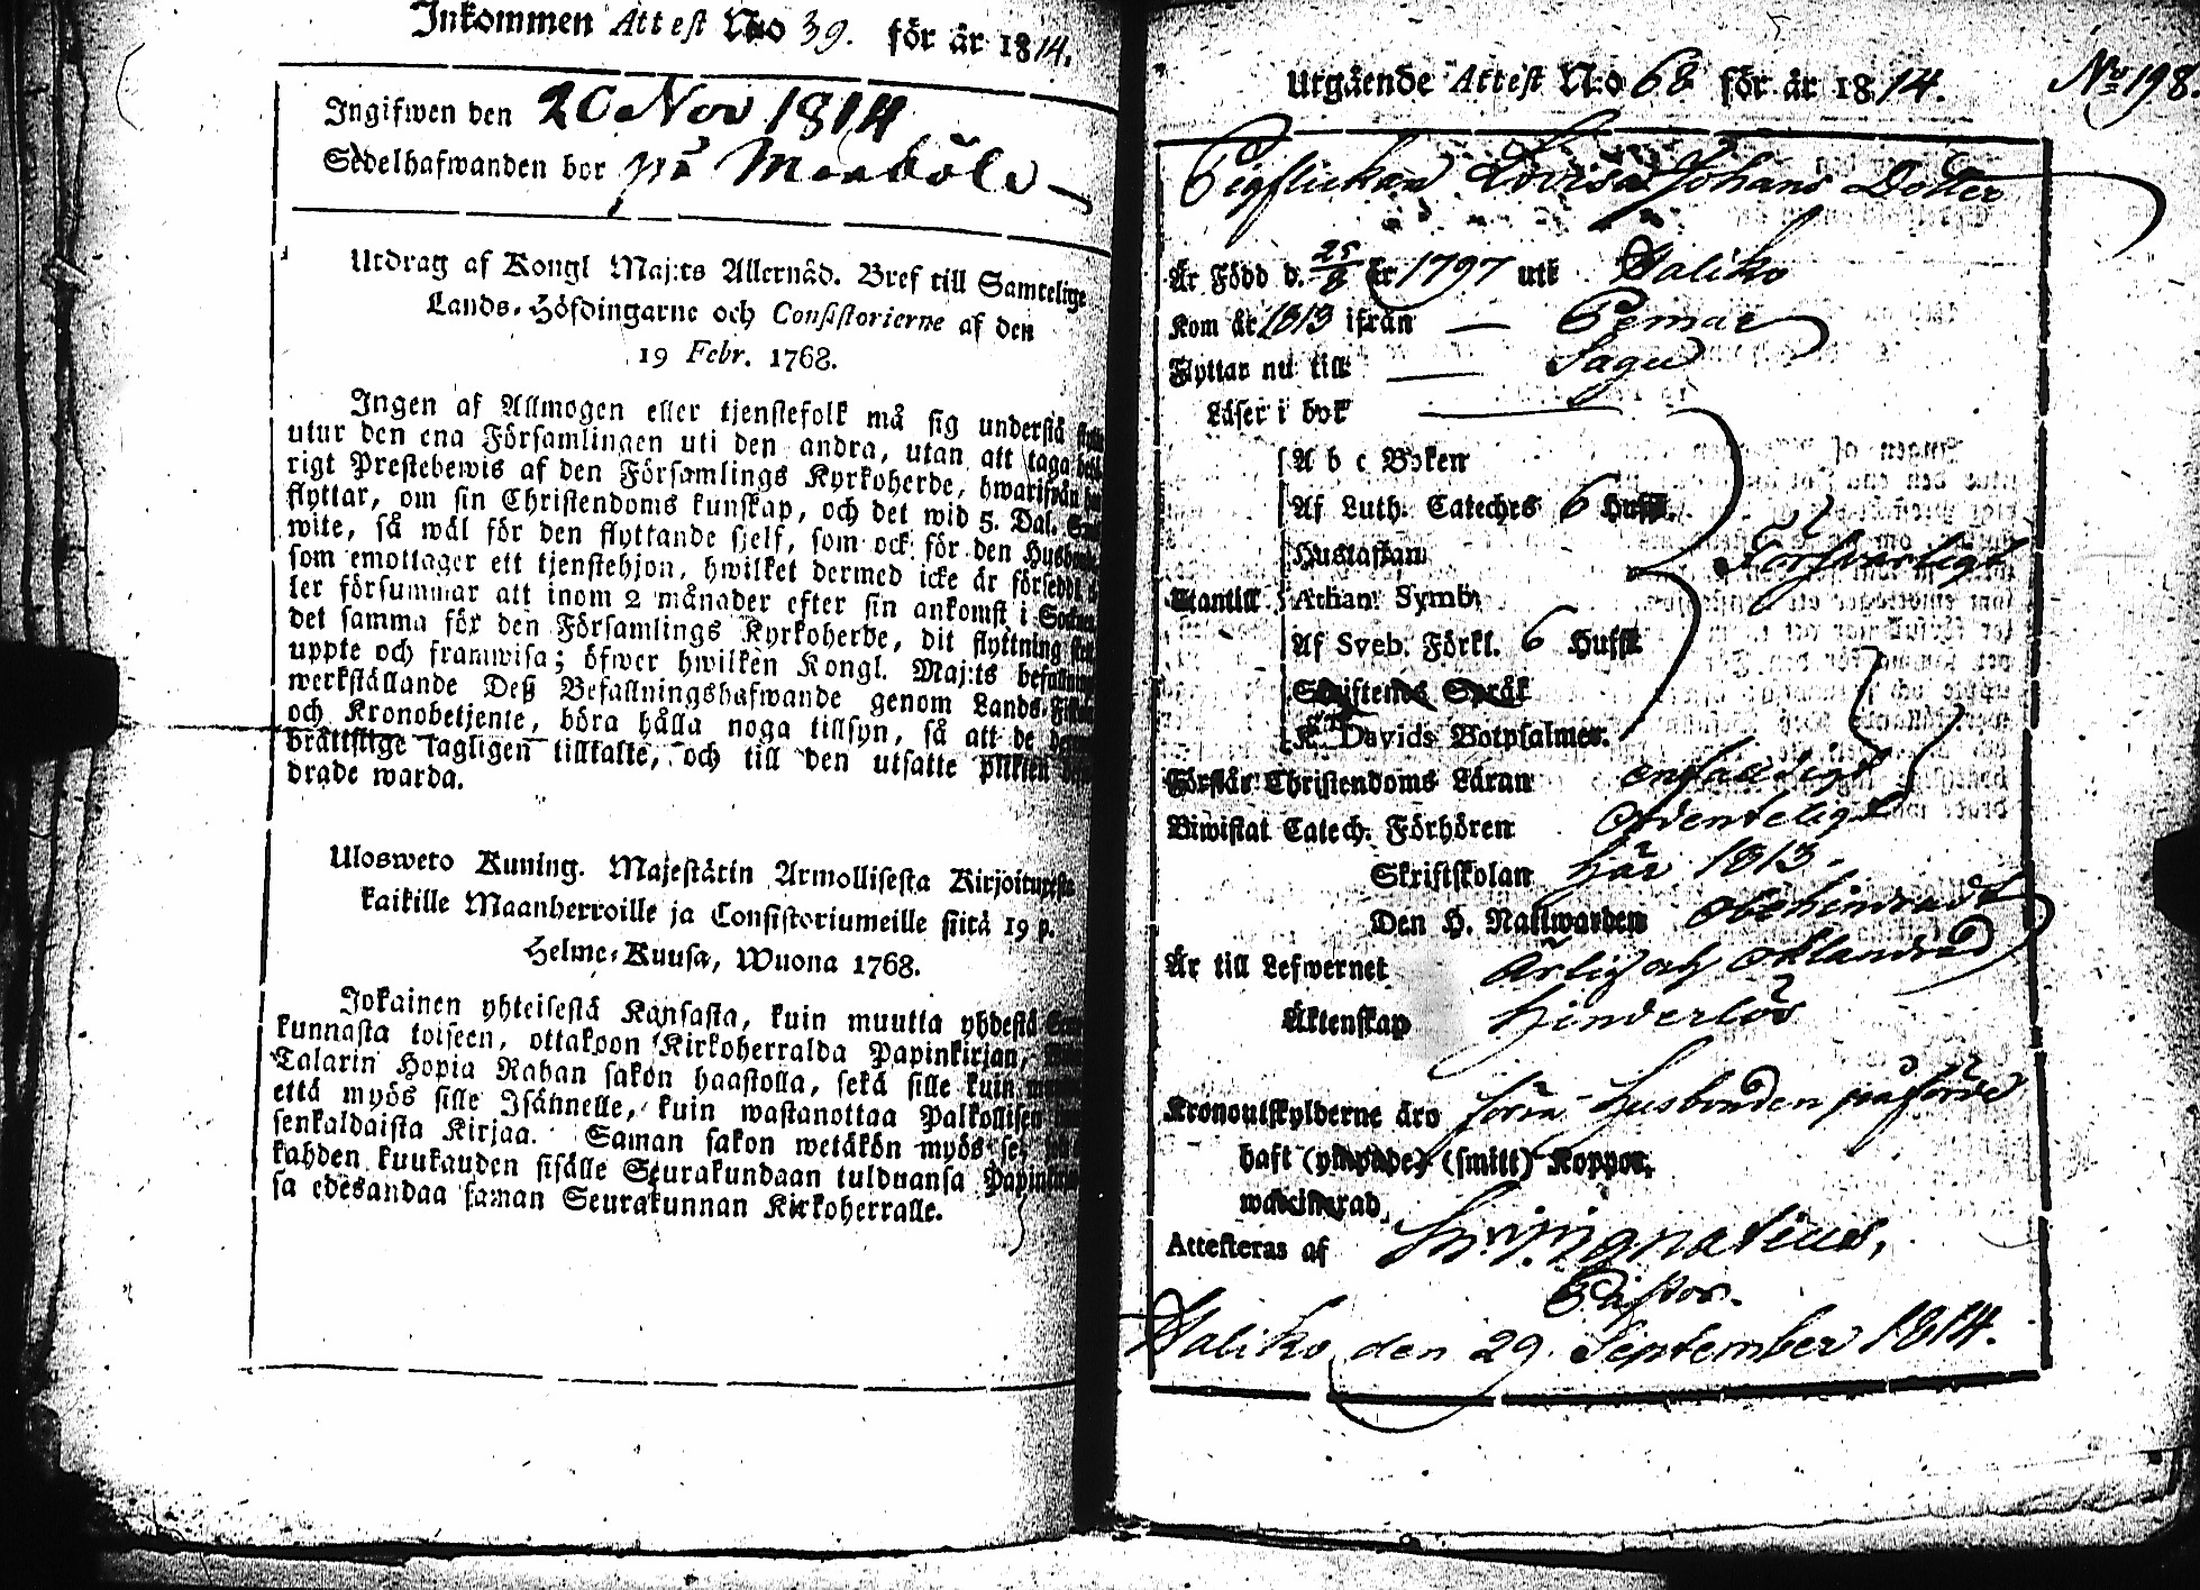 Inkommen Attest N:o 39. för år 1814.
Ingifwen den 20 Nov 1814
Sedelhafwanden bor på
Utdrag af Kongl Maj:ts Allernåd. Bref till Samtelige
Lands-Höfdingarne och Consistorierne af den
19 Febr. 1768.
Ingen af Allmogen eller tjenstefolk må sig understå
utur den ena Församlingen uti den andra, utan att taga
rigt Prestebewis af den Församlings Kyrkoherde, hwarifrån
flyttar, om sin Christendoms kunskap, och det wid 5. Dal.
wite, så wäl för den flyttande sjelf, som ock för den
som emottager ett tjenstehjon, hwilket dermed icke är försedd
ler försummar att inom 2 månader efter sin ankomst i
det samma för den Församlings Kyrkoherde, dit flyttning
uppte och framwisa; öfwer hwilken Kongl. Maj:ts
werkställande Deß Befallningshafwande genom Lands-
och Kronobetjente, böra hålla noga tillsyn, så att de
brättslige lagligen tilltalte, och till den utsatte plikten
drade warda.
Ulosweto Kuning. Majestätin Armollisesta Kirjoituxesta
kaikille Maanherroille ja Consistoriumeille siitä 19 p.
Helme-Kuusa, Wuona 1768.
Jokainen yhteisestä Kansasta, kuin muutta yhdestä
kunnasta toiseen, ottakoon Kirkoherralda Papinkirjan,
Talarin Hopia Rahan sakon haastolla, sekä sille kuin
että myös sille Isännelle, kuin wastanottaa Palkollisen
senkaldaista Kirjaa. Saman sakon wetäkön myös se,
kahden kuukauden sisälle Seurakundaan tulduansa
sa edesandaa saman Seurakunnan Kirkoherralle.
Utgående Attest N:o 68 för år 1814. No 198.
Pigflickan Lovisa Johans Dotter
Är Född d. 25/8 år 1797 uti Haliko
Kom år 1813 ifrån — Pemar
Flyttar nu till — Sagu
Läser i bok
A b c Boken
Af Luth. Cateches 6 Hufst.
Hustaflan
Försvarligt
Utantill Athan. Symb.
Af Sveb. Förkl. 6 Hufst.
Skriftenes Språk
K. Davids Botpsalmer.
Förstår Christendoms Läran enfaldigt
Biwistat Catech. Förhören Ordenteligt
Skriftskolan här 1813.
Den H. Nattwarden obehindradt
Är till Lefwernet Ärlig och oklandrad
Äktenskap Hinderlös
Kronoutskylderne äro förra Husbonden påförde
haft (ympade) (smitt) Koppor,
waccinerad
Attesteras af Ignatius,
Pastor.
Haliko den 29 September 1814.